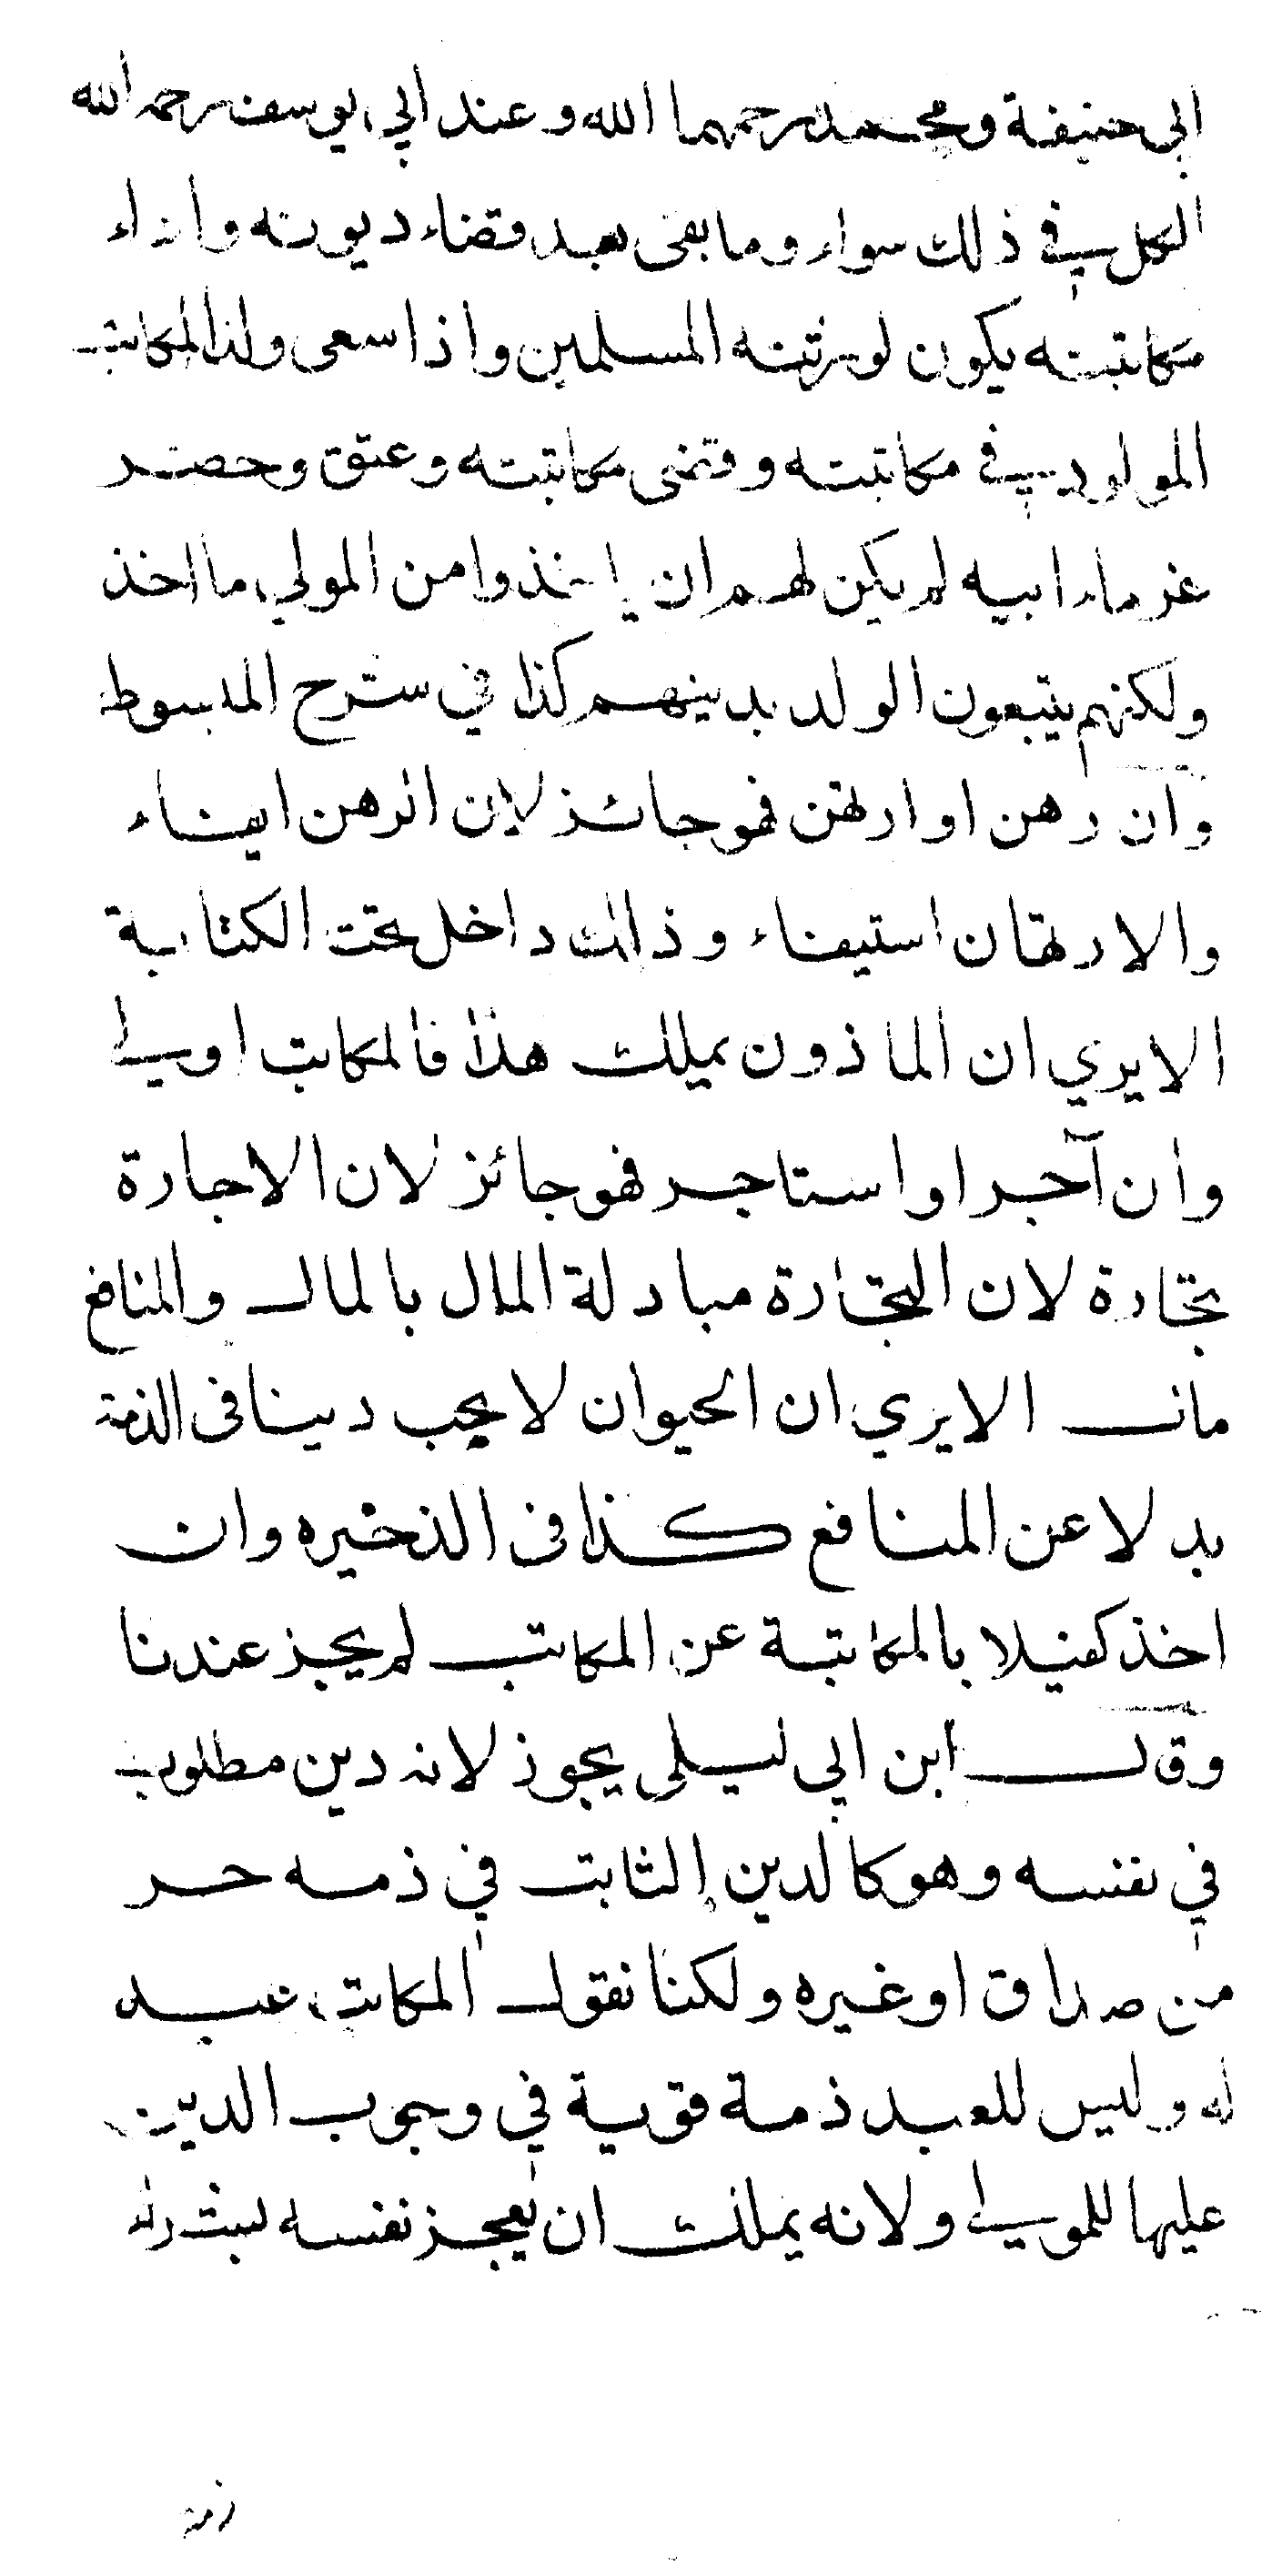 ابى حنيفة ومحمد رحمهما الله وعند ابي يوسف رحمه الله
الكل في ذلك سواء وما بقى بعد قضاء ديونه واداء
مكاتبته يكون لورثته المسلمين واذا سعى ولد المكاتب
المولود في مكاتبته وقضى مكاتبته وعتق وحضر
غرماء ابيه لم يكن لهم ان ياخذوا من المولي ما اخذ
ولكنهم يتبعون الولد بدينهم كذا في شرح المبسوط
وان رهن او ارتهن فهو جائز لان الرهن ايفاء
والارتهان استيفاء وذلك داخل تحت الكتابة
الايري ان الماذون يملك هذا فالمكاتب اولي
وان آجر او استاجر فهو جائز لان الاجارة
تجارة لان التجارة مبادلة المال بالمال والمنافع
مال الايري ان الحيوان لا يجب دينا فى الذمة
بدلا عن المنافع كذا فى الذخيره وان
اخذ كفيلا بالمكاتبة عن المكاتب لم يجز عندنا
وقال ابن ابي ليلى يجوز لانه دين مطلوب
في نفسه وهو كالدين الثابت في ذمه حر
من صداق او غيره ولكنا نقول المكاتب عبد
له وليس للعبد ذمة قوية في وجوب الدين
عليها للمولي ولانه يملك ان يعجز نفسه